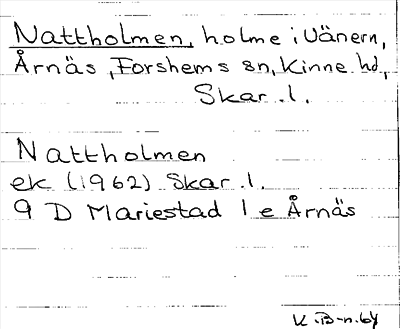 Nattholmen, holme i Vänern,
Årnäs, Forshems sn, Kinne hd,
Skar. l.
Nattholmen
ek (1962) Skar. l.
9 D Mariestad 1 e Årnäs
K. B-n. 64